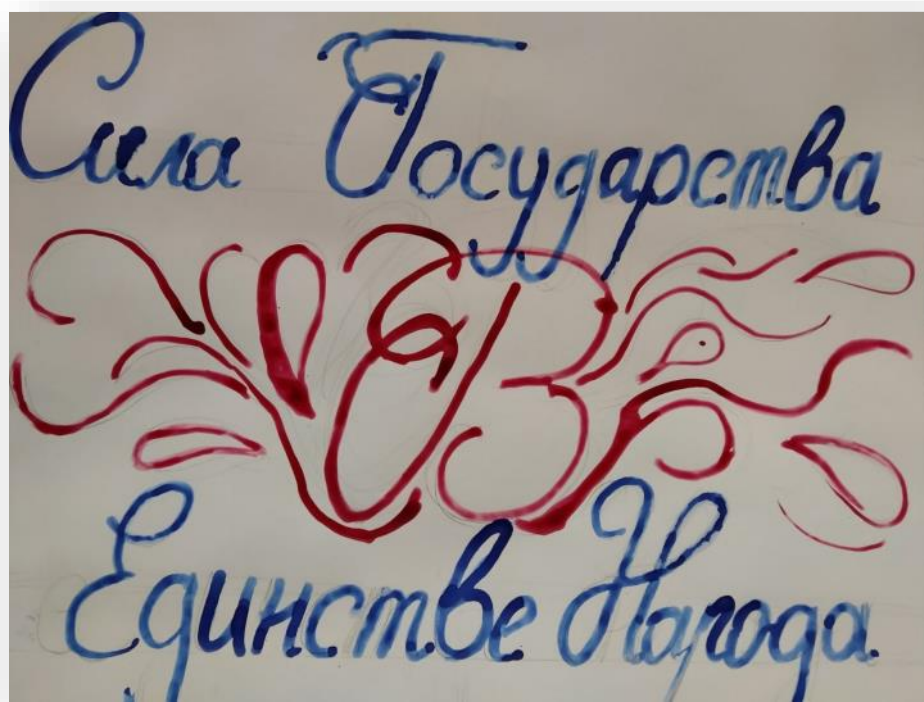 Сила Государства
В
Единстве Народа